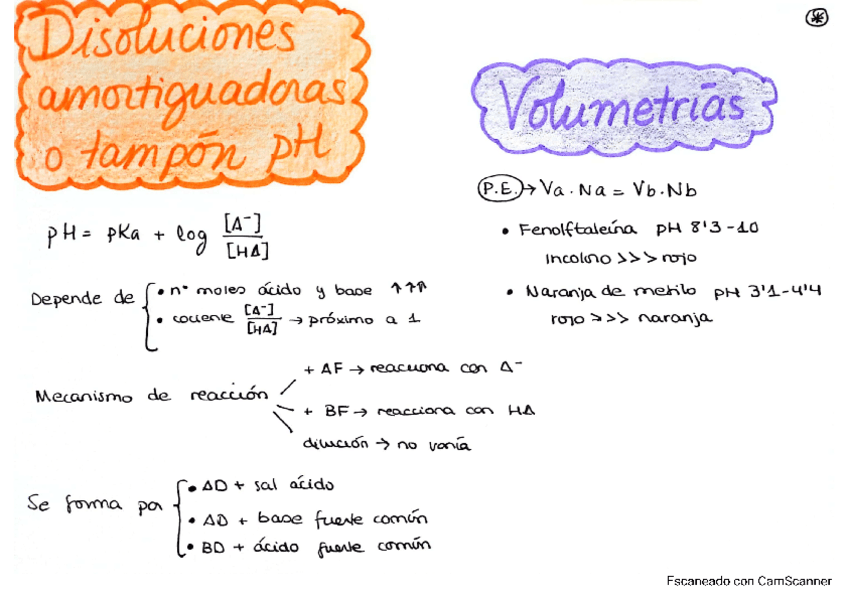 Disoluciones
amortiguadoras
o tampón pH
pH = pKa + log [A⁻]/[HA]
Depende de
• nº moles ácido y base ↑↑↑
• cociente [A⁻]/[HA] → próximo a 1
Mecanismo de reacción
+ AF → reacciona con A⁻
+ BF → reacciona con HA
dilución → no varía
Se forma por
• AD + sal ácido
• AD + base fuerte común
• BD + ácido fuerte común
Volumetrías
P.E. → Va · Na = Vb · Nb
• Fenolftaleína pH 8'3 - 10
incoloro >>> rojo
• Naranja de metilo pH 3'1 - 4'4
rojo >>> naranja
Escaneado con CamScanner